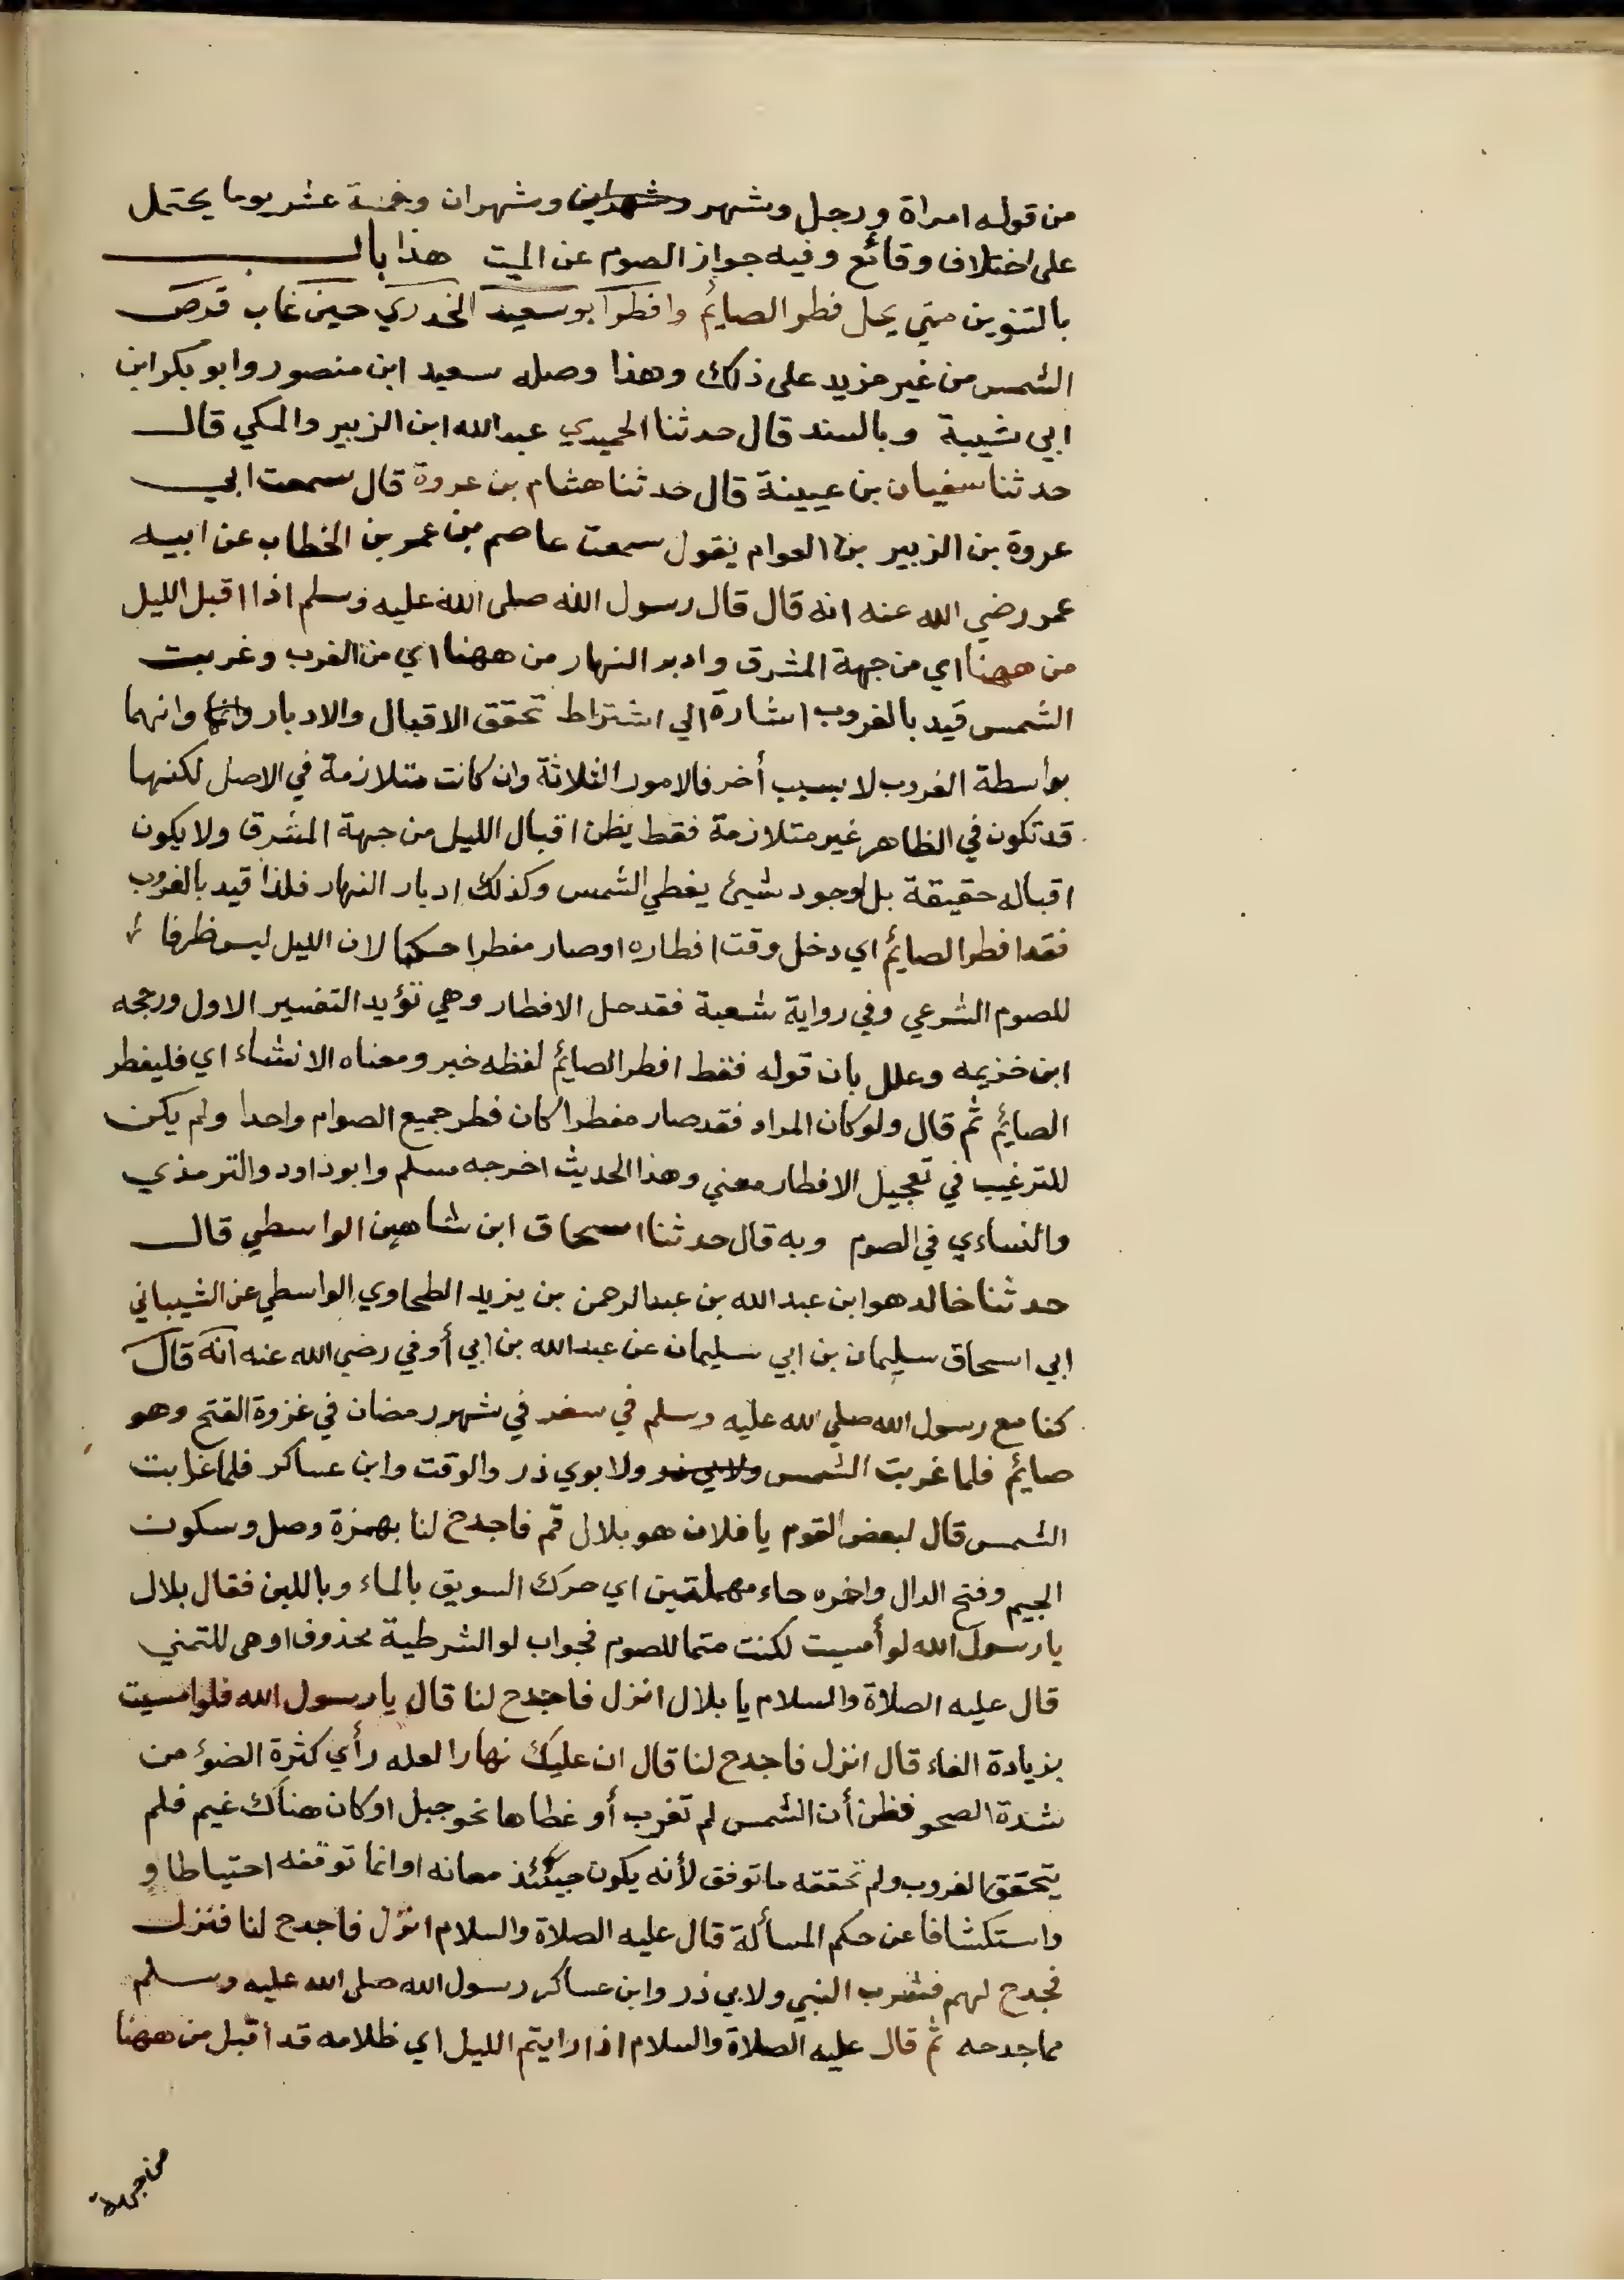 من قوله امراة ورجل وشهر وشهرين وشهران وخمسة عشر يوما يحتمل
على اختلاف وقائع وفيه جواز الصوم عن الميت هذا باب
بالتنوين متي يحل فطر الصايم وافطر ابو سعيد الخدري حين غاب قرص
الشمس من غير مزيد على ذلك وهذا وصله سعيد ابن منصور وابو بكر ابن
ابي شيبة وبالسند قال حدثنا الحميدي عبد الله ابن الزبير والمكي قال
حدثنا سفيان بن عيينة قال حدثنا هشام بن عروة قال سمعت ابي
عروة بن الزبير بن العوام يقول سمعت عاصم بن عمر بن الخطاب عن ابيه
عمر رضي الله عنه انه قال قال رسول الله صلى الله عليه وسلم اذا اقبل الليل
من ههنا اي من جهة المشرق وادبر النهار من ههنا اي من الغرب وغربت
الشمس قيد بالغروب اشارة الي اشتراط تحقق الاقبال والادبار وانما وانهما
بواسطة الغروب لا بسبب أخر فالامور الثلاثة وان كانت متلازمة في الاصل لكنها
قد تكون في الظاهر غير متلازمة فقط يظن اقبال الليل من جهة المشرق ولا يكون
اقباله حقيقة بل لوجود شيئ يغطي الشمس وكذلك ادبار النهار فلذا قيد بالغروب
فقد افطر الصايم اي دخل وقت افطاره او صار مفطرا حكما لان الليل ليس ظرفا
للصوم الشرعي وفي رواية شعبة فقد حل الافطار وهي تؤيد التفسير الاول ورجحه
ابن خزيمه وعلل بان قوله فقط افطر الصايم لفظه خبر ومعناه الانشاء اي فليفطر
الصايم ثم قال ولو كان المراد فقد صار مفطرا كان فطر جميع الصوام واحدا ولم يكن
للترغيب في تعجيل الافطار معني وهذا الحديث اخرجه مسلم وابو داود والترمذي
والنساءي في الصوم وبه قال حدثنا اسحاق ابن شاهين الواسطي قال
حدثنا خالد هو ابن عبد الله بن عبد الرحمن بن يزيد الطحاوي الواسطي عن الشيباني
ابي اسحاق سليمان بن ابي سليمان عن عبد الله بن ابي أوفي رضي الله عنه انه قال
كنا مع رسول الله صلي الله عليه وسلم في سفر في شهر رمضان في غزوة الفتح وهو
صايم فلما غربت الشمس ولابي ذر ولابوي ذر والوقت وابن عساكر فلما غابت
الشمس قال لبعض القوم يا فلان هو بلال قم فاجدح لنا بهمزة وصل وسكون
الجيم وفتح الدال واخره حاء مهملتين اي حرك السويق بالماء وباللبن فقال بلال
يا رسول الله لو أمسيت لكنت متما للصوم فجواب لو الشرطية محذوف او هي للتمني
قال عليه الصلاة والسلام يا بلال انزل فاجدح لنا قال يا رسول الله فلو امسيت
بزيادة الفاء قال انزل فاجدح لنا قال ان عليك نهارا لعله رأي كثرة الضوء من
شدة الصحو فظن أن الشمس لم تغرب أو غطاها نحو جبل او كان هناك غيم فلم
يتحقق الغروب ولم تحققه ما توفق لأنه يكون حينئذ معانه او انما توقفه احتياطا و
واستكشافا عن حكم المسألة قال عليه الصلاة والسلام انزل فاجدح لنا فنزل
فجدح لهم فشرب النبي ولابي ذر وابن عساكر رسول الله صلى الله عليه وسلم
مما جدحه ثم قال عليه الصلاة والسلام اذا رايتم الليل اي ظلامه قد أقبل من ههنا
من جهة